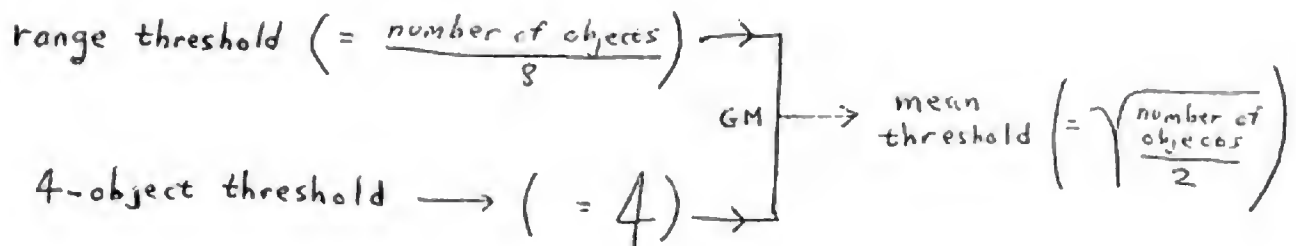 range threshold ( = number of objects / 8 )
GM
mean threshold ( = √ number of objects / 2 )
4-object threshold → ( = 4 )